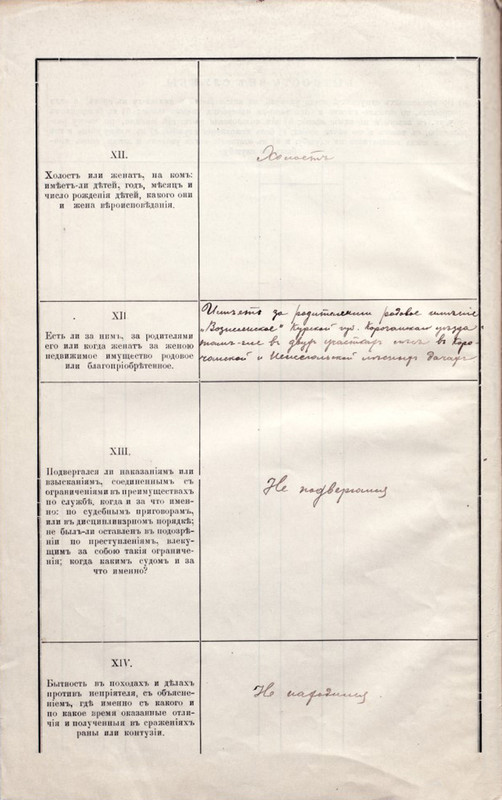 XII.
Холостъ или женатъ, на комъ:
имѣетъ-ли дѣтей, годъ, мѣсяцъ и
число рожденія дѣтей, какого они
и жена вѣроисповѣданія.
Холостъ
XII
Есть ли за нимъ, за родителями
его или когда женатъ за женою
недвижимое имущество родовое
или благопріобрѣтенное.
Имѣетъ за родителями родовое имѣніе
„Вознесенское" Курской губ. Корочанскаго уѣзда
въ двухъ участкахъ въ Коро-
чанской и
XIII.
Подвергался ли наказаніямъ или
взысканіямъ, соединеннымъ съ
ограниченіями въ преимуществахъ
по службѣ, когда и за что имен-
но: по судебнымъ приговорамъ,
или въ дисциплинарномъ порядкѣ;
не былъ-ли оставленъ въ подозрѣ-
ніи по преступленіямъ, влеку-
щимъ за собою такія ограниче-
нія; когда какимъ судомъ и за
что именно?
Не подвергался
XIV.
Бытность въ походахъ и дѣлахъ
противъ непріятеля, съ объясне-
ніемъ, гдѣ именно съ какого и
по какое время оказанные отли-
чія и полученныя въ сраженіяхъ
раны или контузіи.
Не находился